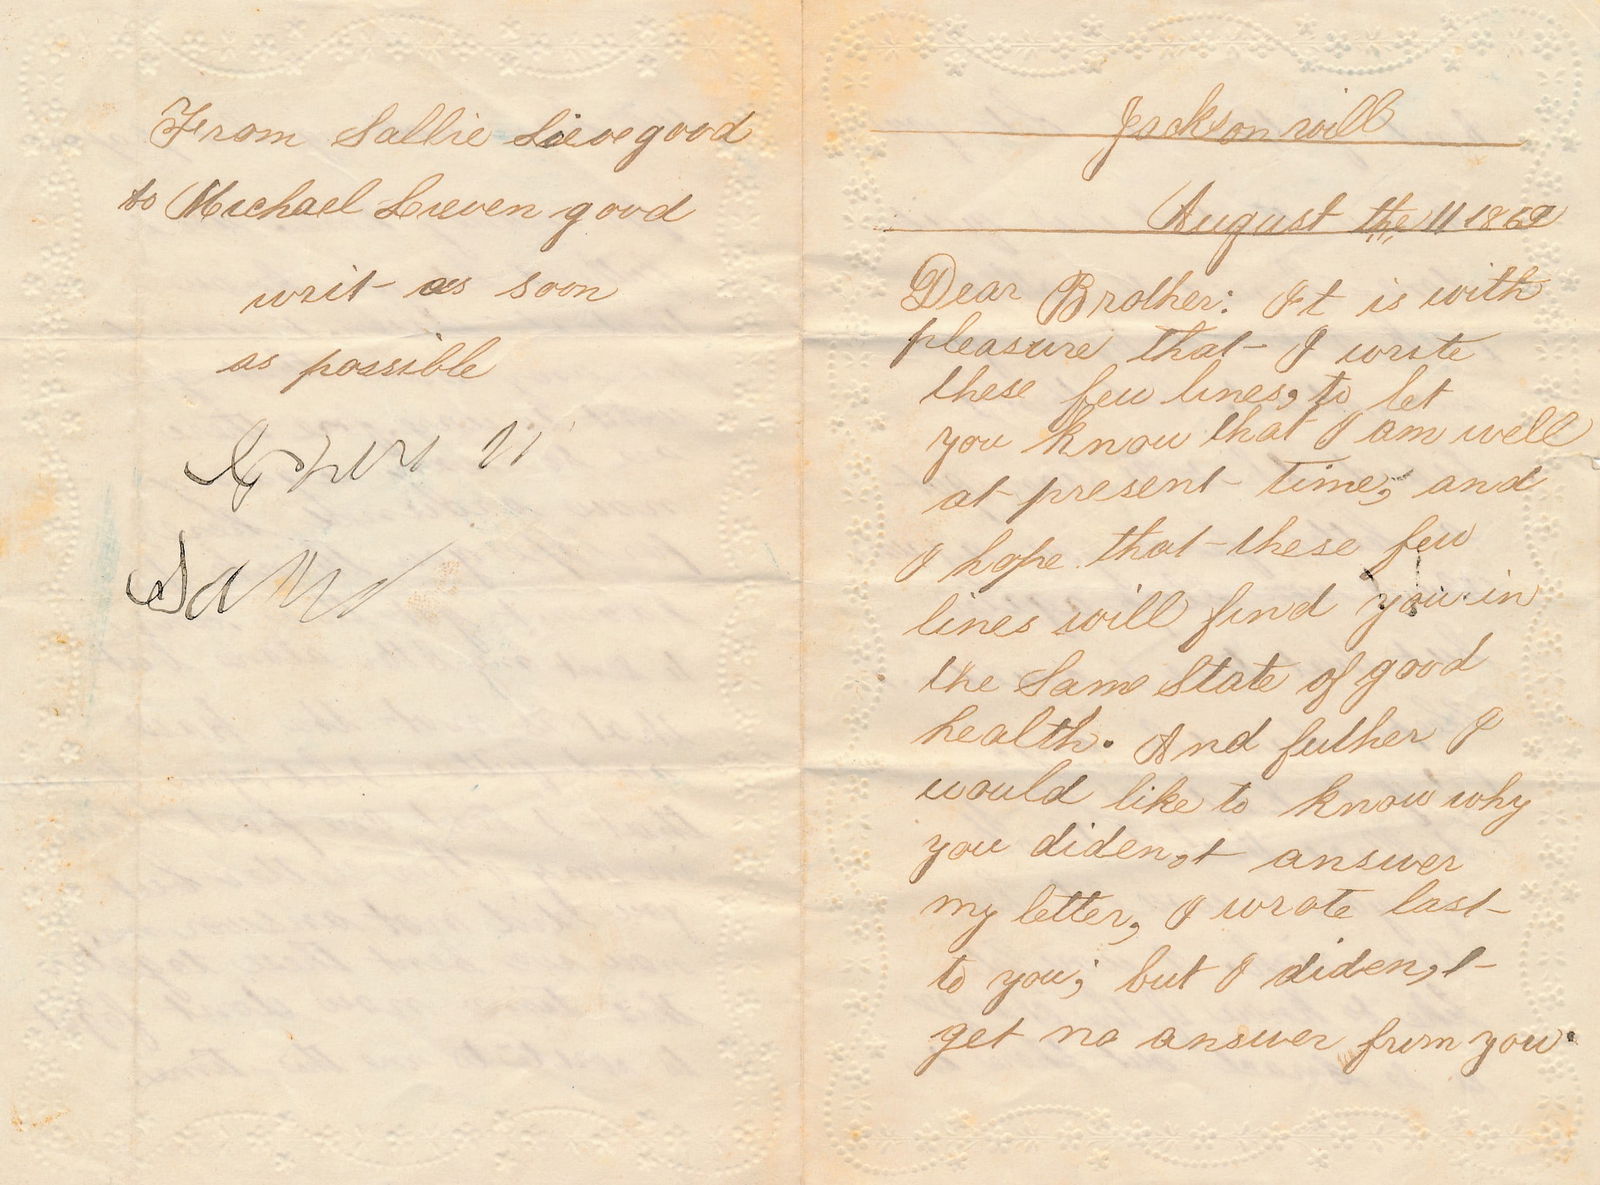 From Sallie Lievegood
to Michael Lievengood
writ as soon
as possible
Jacksonvill
August the 11 1869
Dear Brother: It is with
pleasure that I write
these few lines, to let
you know that I am well
at present time, and
I hope that these few
lines will find you in
the Same State of good
health. And futher I
would like to know why
you diden,t answer
my letter, I wrote last
to you; but I diden,t
get no answer frum you.